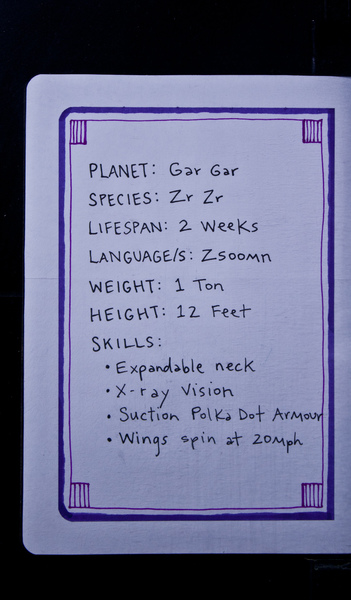 PLANET: Gar Gar
SPECIES: Zr Zr
LIFESPAN: 2 Weeks
LANGUAGE/S: Zsoomn
WEIGHT: 1 Ton
HEIGHT: 12 Feet
SKILLS:
• Expandable neck
• X-ray Vision
• Suction Polka Dot Armour
• Wings spin at 20mph